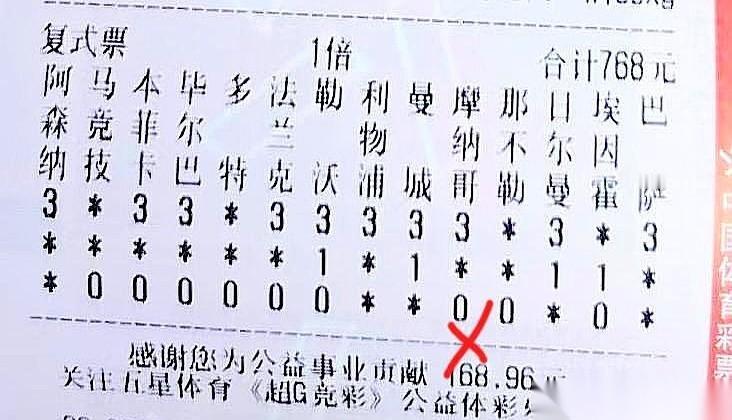 复式票 1倍 合计768元
阿森纳
马竞技
本菲卡
毕尔巴
多特
法兰克
勒沃
利物浦
曼城
摩纳哥
那不勒
日尔曼
埃因霍
巴萨
3 * 3 3 * 3 3 3 3 3 * 3 * 3
* * * * * * 1 * 1 * * 1 1 *
* 0 0 0 0 0 0 * * 0 0 * 0 *
感谢您为公益事业贡献 168.96元
关注五星体育《超G竞彩》公益体彩
中国体育彩票